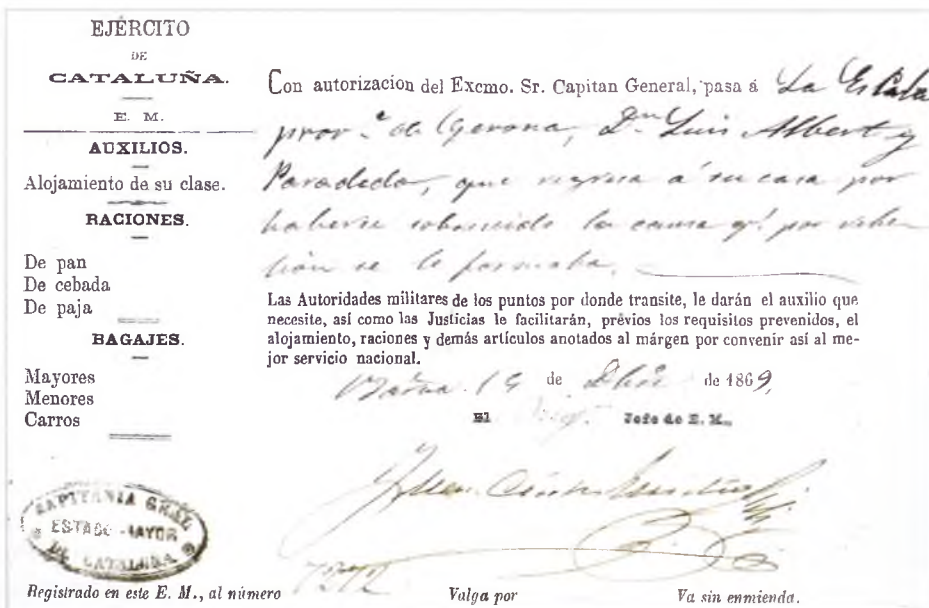 EJÉRCITO
DE
CATALUÑA.
E. M.
AUXILIOS.
Alojamiento de su clase.
RACIONES.
De pan
De cebada
De paja
BAGAJES.
Mayores
Menores
Carros
Con autorizacion del Excmo. Sr. Capitan General, pasa á La Escala
prov.ª de Gerona, D.n Luis Albert y
Paradeda, que regresa á su casa por
haberse sobreseido la causa q.e por rebe
lion se le formaba.
Las Autoridades militares de los puntos por donde transite, le darán el auxilio que
necesite, así como las Justicias le facilitarán, prévios los requisitos prevenidos, el
alojamiento, raciones y demás artículos anotados al márgen por convenir así al me-
jor servicio nacional.
de de 1869,
El Jefe de E. M.,
CAPITANIA GRAL
ESTADO-MAYOR
DE CATALUÑA
Registrado en este E. M., al número Valga por Va sin enmienda.